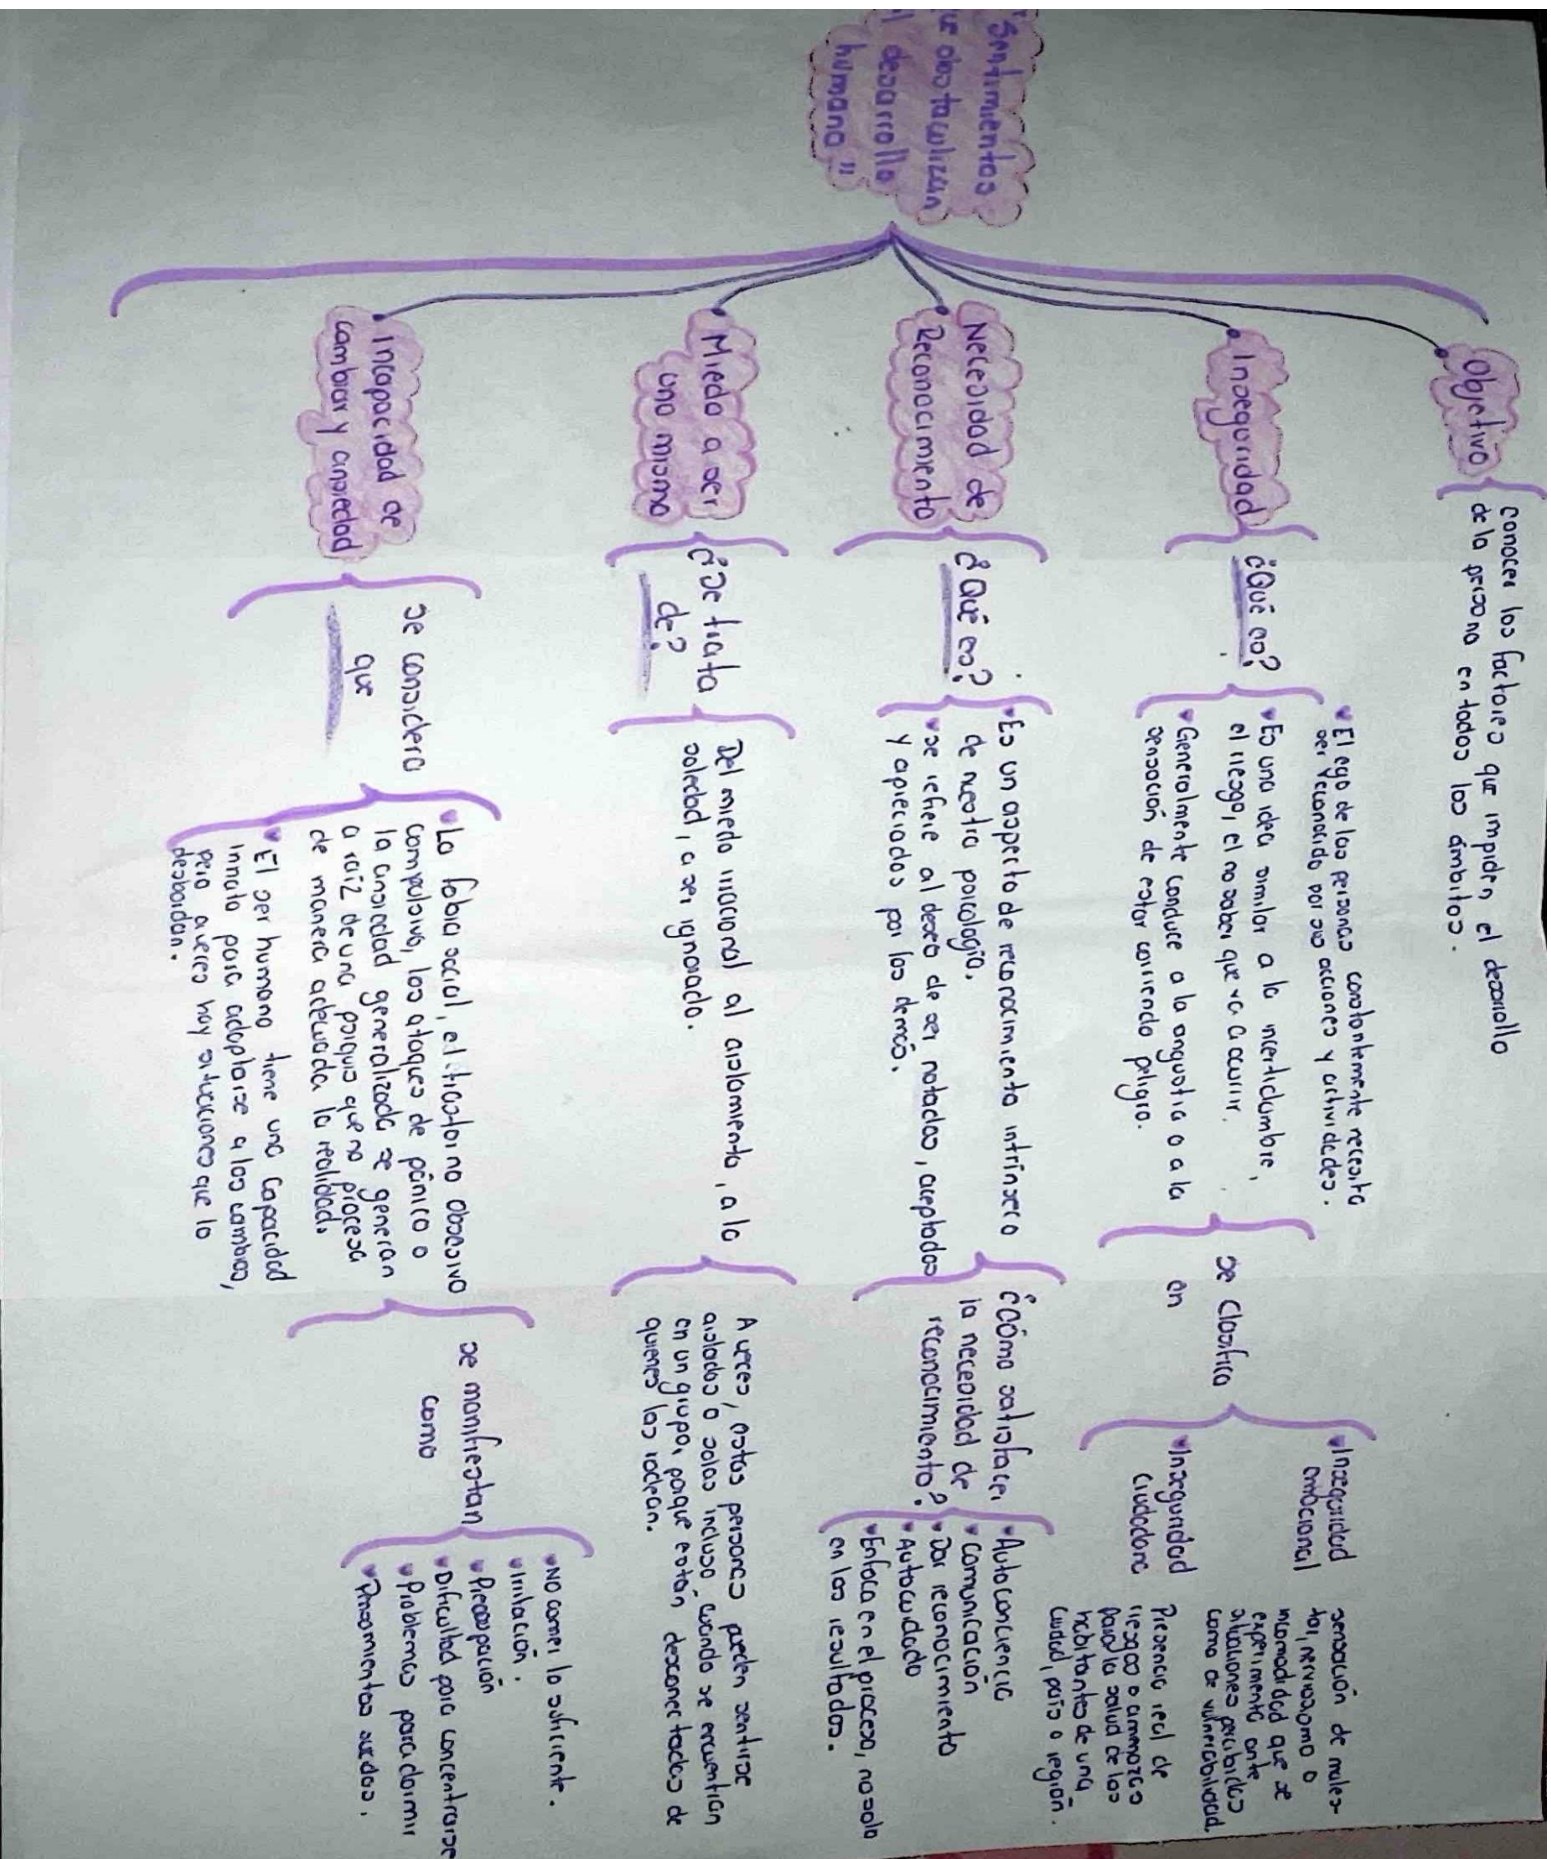 "Sentimientos
que obstaculizan
el desarrollo
humano"
Objetivo
conocer los factores que impiden el desarrollo
de la persona en todos los ámbitos.
Inseguridad
¿Qué es?
El ego de las personas constantemente necesita
ser reconocido por sus acciones y actividades.
Es una idea similar a la incertidumbre,
el riesgo, el no saber que va a ocurrir.
Generalmente conduce a la angustia o a la
sensación de estar corriendo peligro.
se clasifica
en
Inseguridad
emocional
sensación de males-
tar, nerviosismo o
incomodidad que se
experimenta ante
situaciones percibidas
como de vulnerabilidad.
Inseguridad
ciudadana
Presencia real de
riesgos o amenazas
para la salud de los
habitantes de una
ciudad, país o región.
Necesidad de
Reconocimiento
¿Qué es?
Es un aspecto de reconocimiento intrínseco
de nuestra psicología.
se refiere al deseo de ser notados, aceptados
y apreciados por los demás.
¿Cómo satisfacer
la necesidad de
reconocimiento?
Autoconciencia
Comunicación
Dar reconocimiento
Autocuidado
Enfoca en el proceso, no solo
en los resultados.
Miedo a ser
uno mismo
¿Se trata
de?
Del miedo irracional al aislamiento, a la
soledad, a ser ignorado.
A veces, estas personas pueden sentirse
aislados o solos incluso cuando se encuentran
en un grupo, porque están desconectados de
quienes los rodean.
Incapacidad de
cambiar y ansiedad
se considera
que
La fobia social, el trastorno obsesivo
compulsivo, los ataques de pánico o
la ansiedad generalizada se generan
a raíz de una psiquis que no procesa
de manera adecuada la realidad.
El ser humano tiene una capacidad
innata para adaptarse a los cambios,
pero a veces hay situaciones que lo
desbordan.
se manifiestan
como
No comer lo suficiente.
Irritación.
Preocupación
Dificultad para concentrarse
Problemas para dormir
Pensamientos